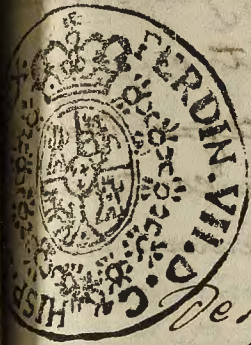 FERDIN. VII. D. G. HISP.
De